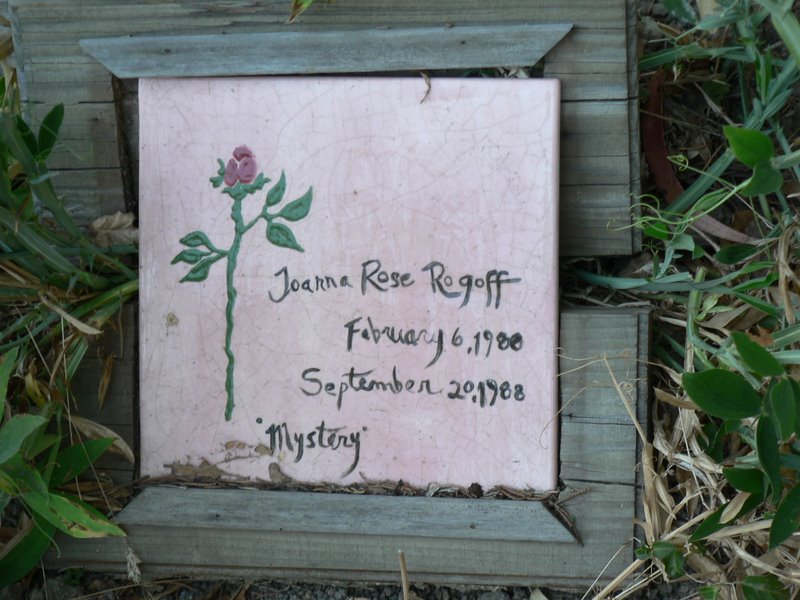 Joanna Rose Rogoff
February 6, 1988
September 20, 1988
"Mystery"